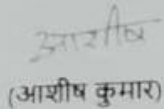 आशीष
(आशीष कुमार)